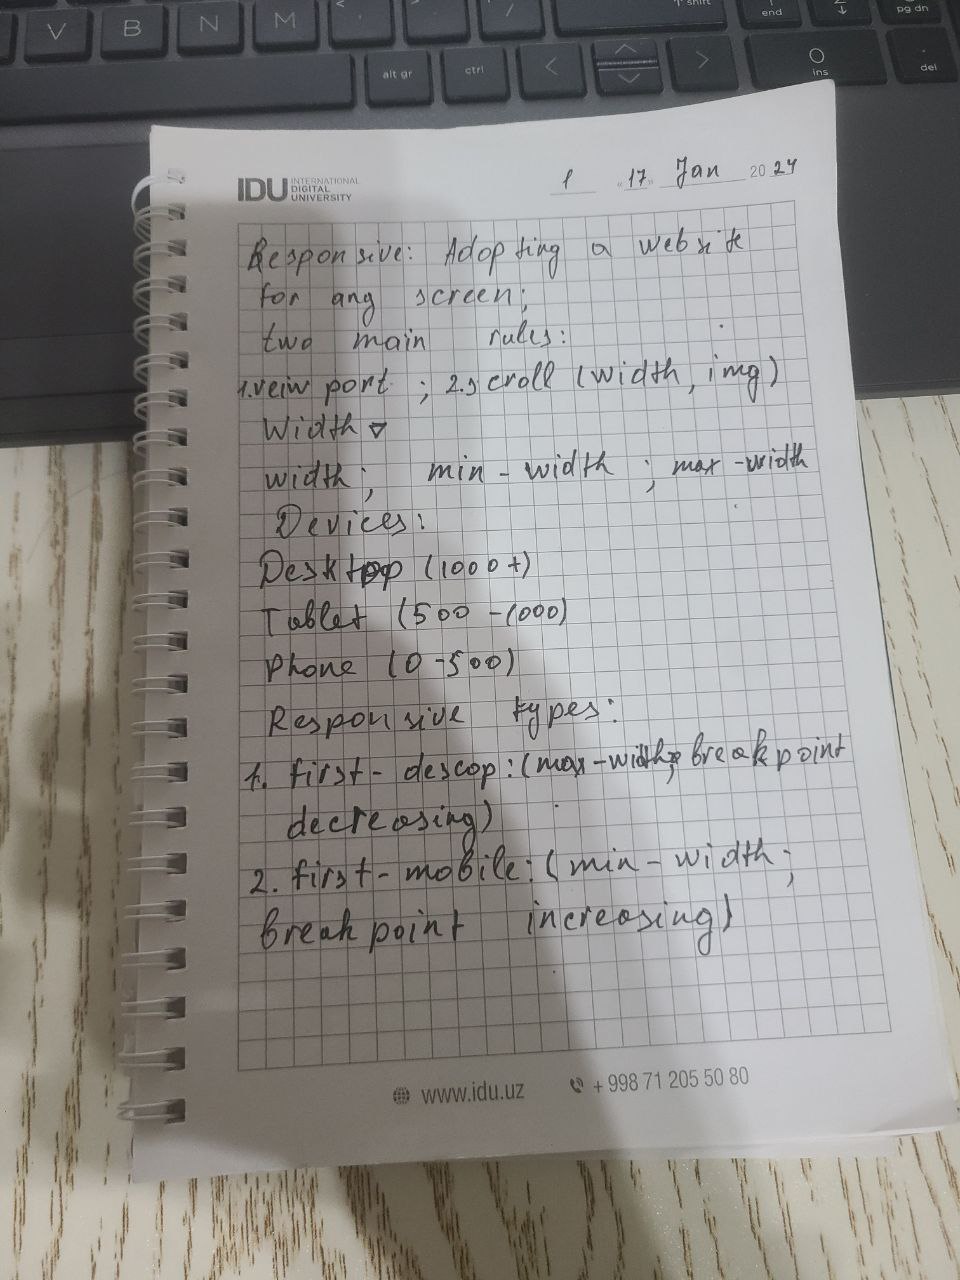 V B N M < ; / ⇧ shift end ↓ pg dn
alt gr ctrl < > ins del
IDU INTERNATIONAL DIGITAL UNIVERSITY
1 «17» Jan 2024
Responsive: Adopting a website
for any screen;
two main rules:
1.veiw port ; 2.scroll (width, img)
Width ▽
width; min-width ; max-width
Devices:
Desktop (1000+)
Tablet (500-1000)
Phone (0-500)
Responsive types:
1. first-descop:(max-width; breakpoint
decreasing)
2. first-mobile:(min-width;
breakpoint increasing)
www.idu.uz +998 71 205 50 80